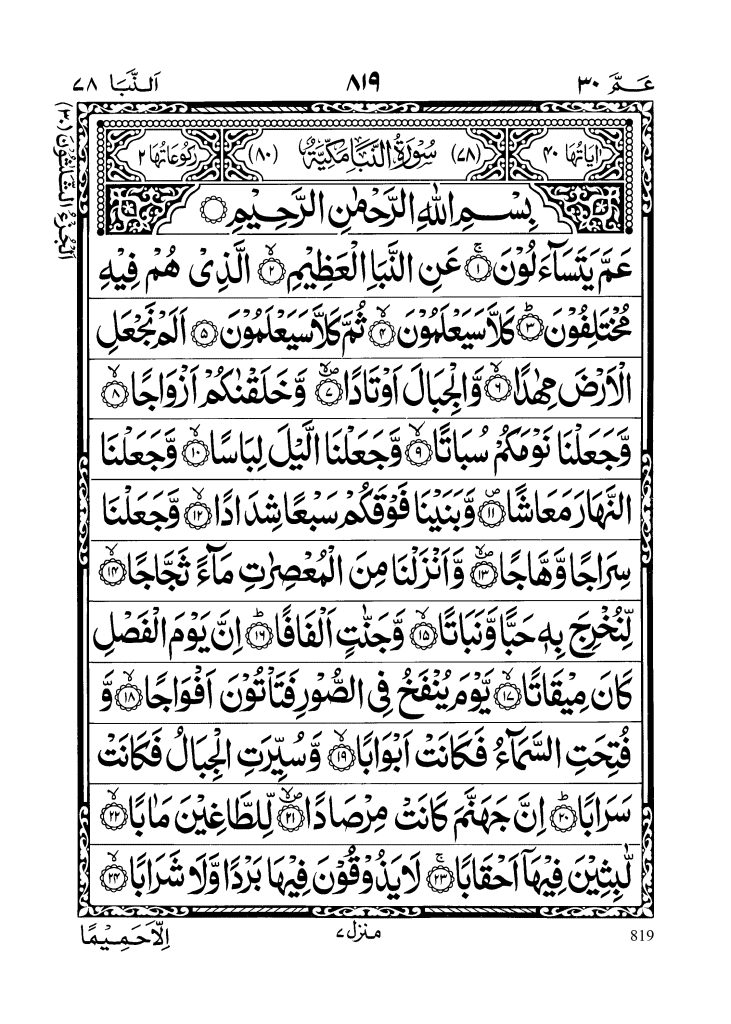 عَمَّ ٣٠
٨١٩
اَلنَّبَا ٧٨
اَلْجُزْءُ الثَّلَاثُوْنَ (٣٠)
اٰيَاتُهَا ٤٠
(٧٨) سُوْرَةُ النَّبَاِ مَكِّيَّةٌ (٨٠)
رُكُوْعَاتُهَا ٢
بِسْمِ اللّٰهِ الرَّحْمٰنِ الرَّحِيْمِ
عَمَّ يَتَسَآءَلُوْنَ ۚ﴿١﴾ عَنِ النَّبَاِ الْعَظِيْمِ ۙ﴿٢﴾ الَّذِىْ هُمْ فِيْهِ
مُخْتَلِفُوْنَ ؕ﴿٣﴾ كَلَّا سَيَعْلَمُوْنَ ۙ﴿٤﴾ ثُمَّ كَلَّا سَيَعْلَمُوْنَ ﴿٥﴾ اَلَمْ نَجْعَلِ
الْاَرْضَ مِهٰدًا ۙ﴿٦﴾ وَّالْجِبَالَ اَوْتَادًا ۪ۙ﴿٧﴾ وَّخَلَقْنٰكُمْ اَزْوَاجًا ۙ﴿٨﴾
وَّجَعَلْنَا نَوْمَكُمْ سُبَاتًا ۙ﴿٩﴾ وَّجَعَلْنَا الَّيْلَ لِبَاسًا ۙ﴿١٠﴾ وَّجَعَلْنَا
النَّهَارَ مَعَاشًا ۪﴿١١﴾ وَّبَنَيْنَا فَوْقَكُمْ سَبْعًا شِدَادًا ۙ﴿١٢﴾ وَّجَعَلْنَا
سِرَاجًا وَّهَّاجًا ۪ۙ﴿١٣﴾ وَّاَنْزَلْنَا مِنَ الْمُعْصِرٰتِ مَآءً ثَجَّاجًا ۙ﴿١٤﴾
لِّنُخْرِجَ بِهٖ حَبًّا وَّنَبَاتًا ۙ﴿١٥﴾ وَّجَنّٰتٍ اَلْفَافًا ؕ﴿١٦﴾ اِنَّ يَوْمَ الْفَصْلِ
كَانَ مِيْقَاتًا ۙ﴿١٧﴾ يَّوْمَ يُنْفَخُ فِى الصُّوْرِ فَتَاْتُوْنَ اَفْوَاجًا ۙ﴿١٨﴾ وَّ
فُتِحَتِ السَّمَآءُ فَكَانَتْ اَبْوَابًا ۙ﴿١٩﴾ وَّسُيِّرَتِ الْجِبَالُ فَكَانَتْ
سَرَابًا ؕ﴿٢٠﴾ اِنَّ جَهَنَّمَ كَانَتْ مِرْصَادًا ۪ۙ﴿٢١﴾ لِّلطَّاغِيْنَ مَاٰبًا ۙ﴿٢٢﴾
لّٰبِثِيْنَ فِيْهَاۤ اَحْقَابًا ۚ﴿٢٣﴾ لَا يَذُوْقُوْنَ فِيْهَا بَرْدًا وَّلَا شَرَابًا ۙ﴿٢٤﴾
819
منزل ٧
اِلَّا حَمِيْمًا